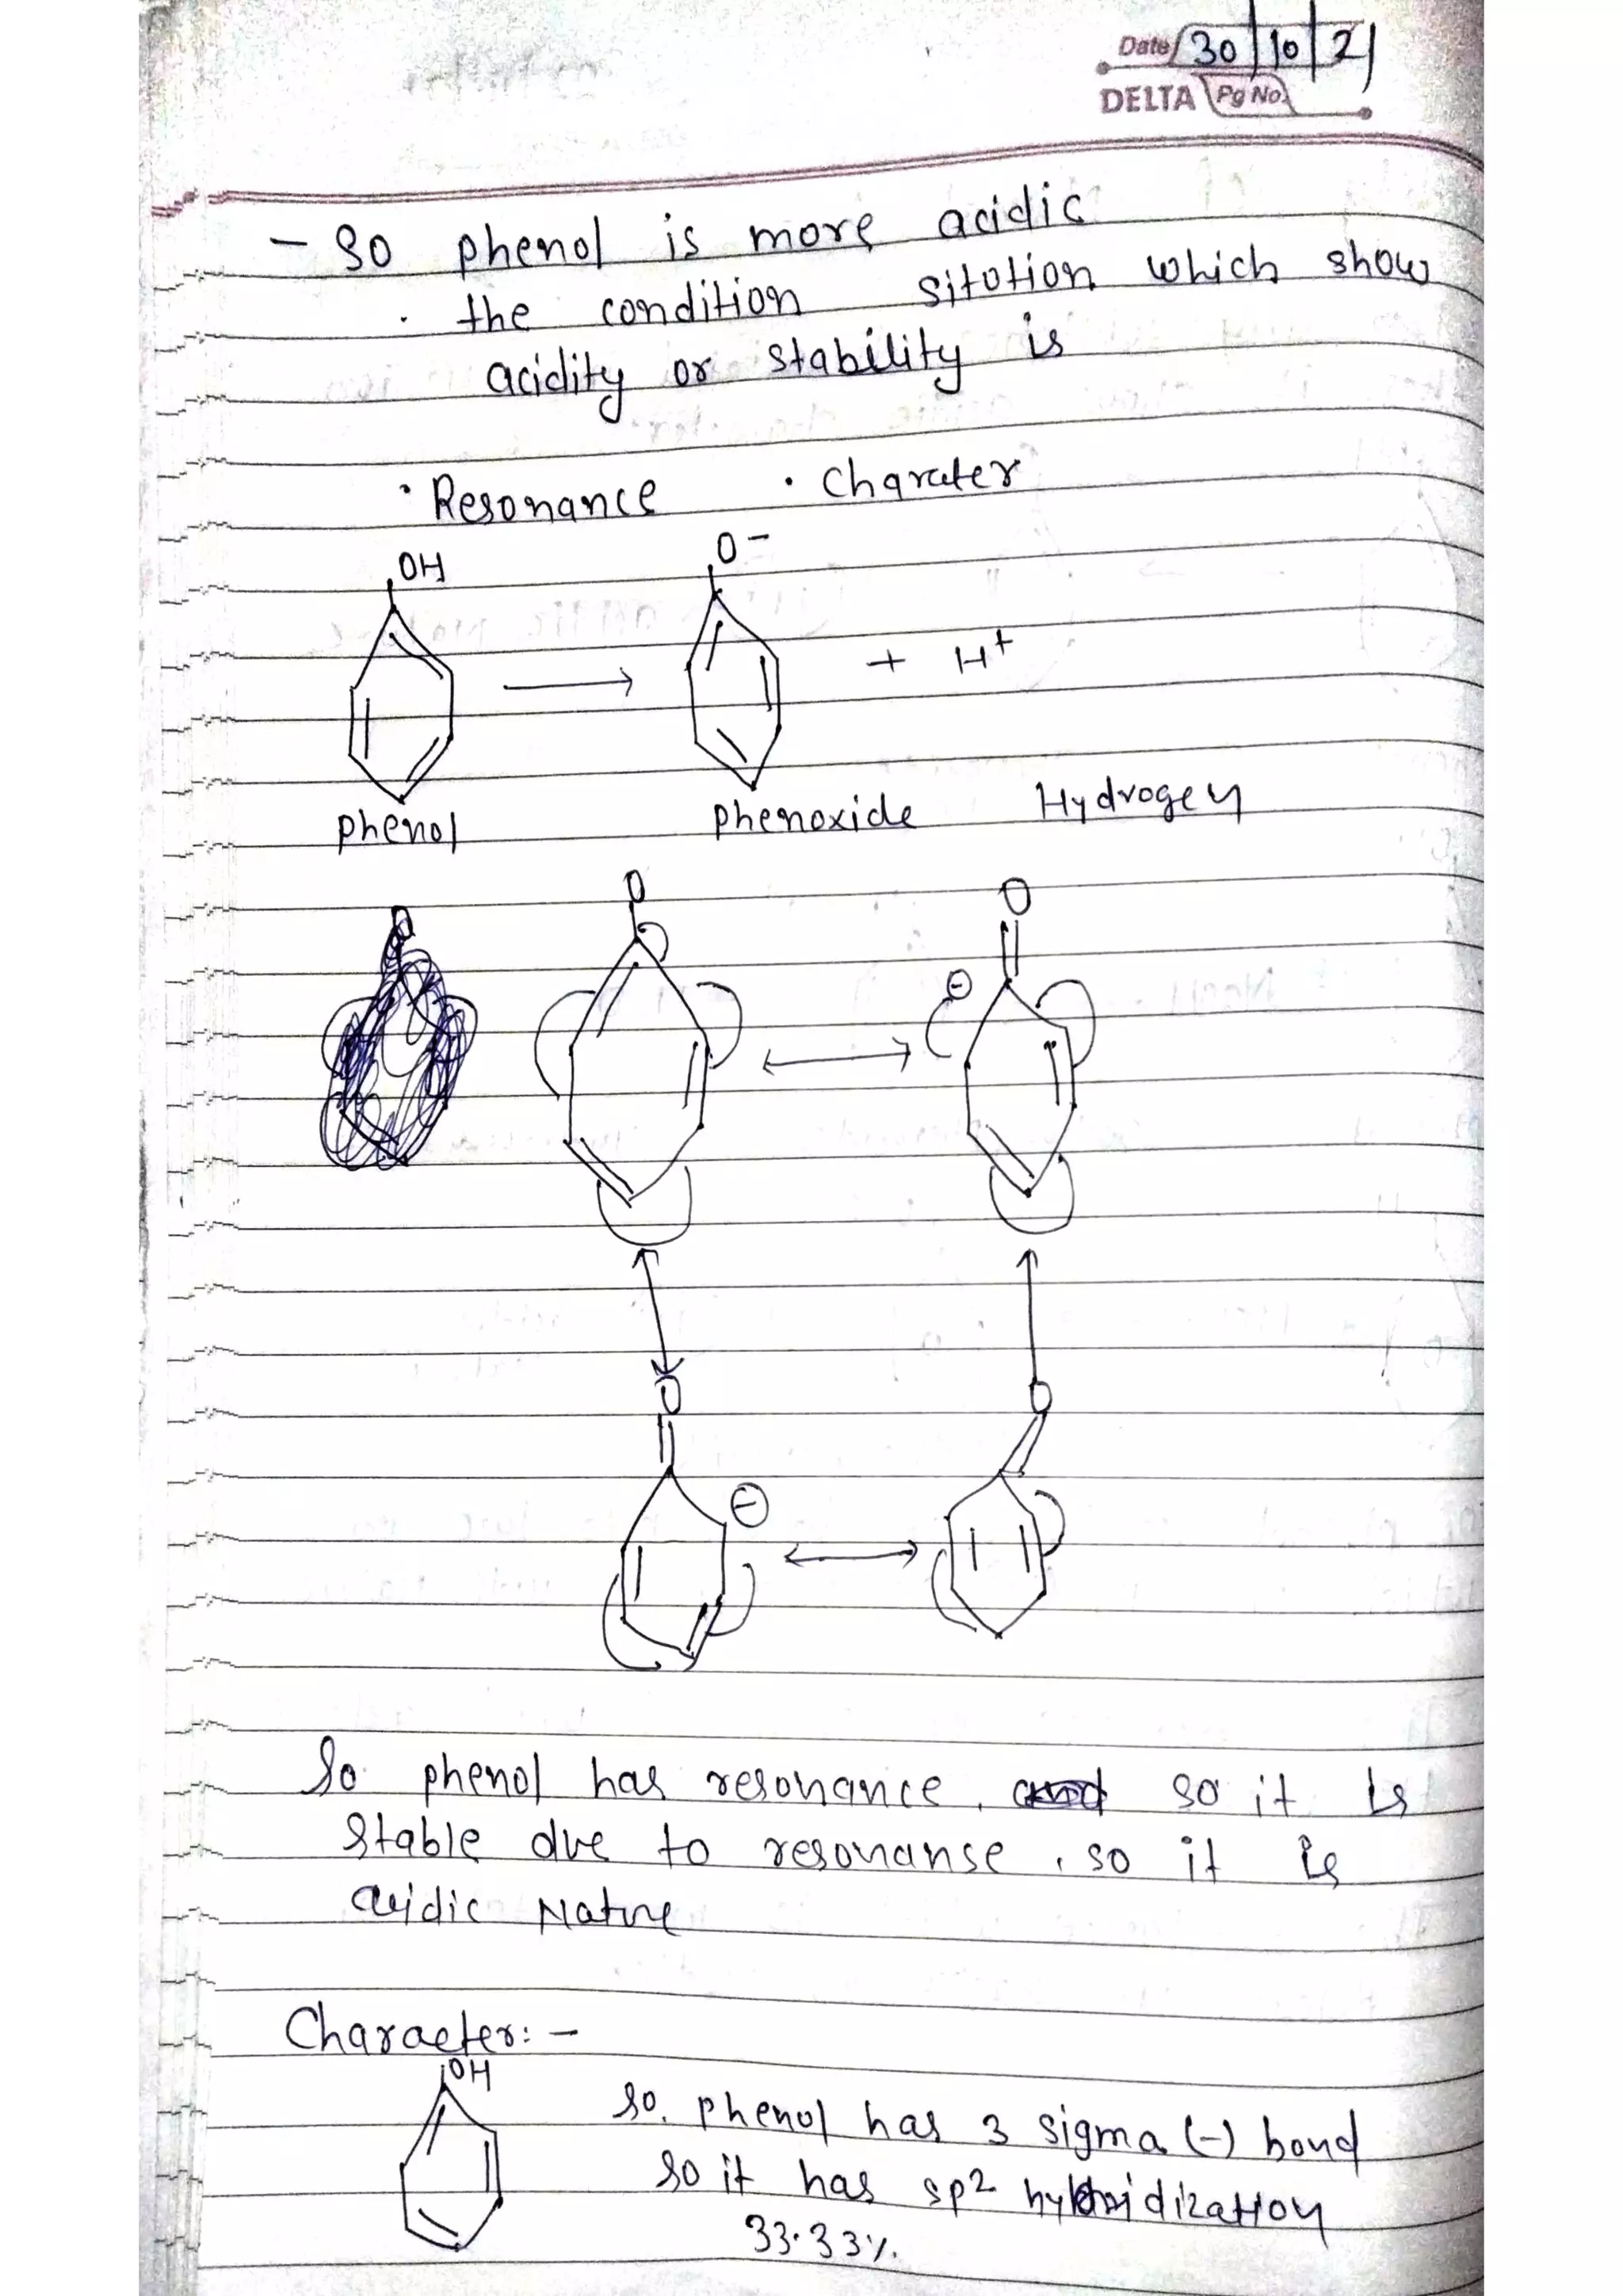 Date 30/10/21
DELTA Pg No.
- So phenol is more acidic
· the condition sitution which show
acidity or stability is
· Resonance · Charater
OH O-
+ H+
phenol phenoxide Hydrogen
O O
⊖
O O
⊖
So phenol has resonance, so it is
stable due to resonanse, so it is
acidic Nature
Character:-
OH
So. phenol has 3 sigma (-) bond
so it has sp2 hybridization
33.33%.